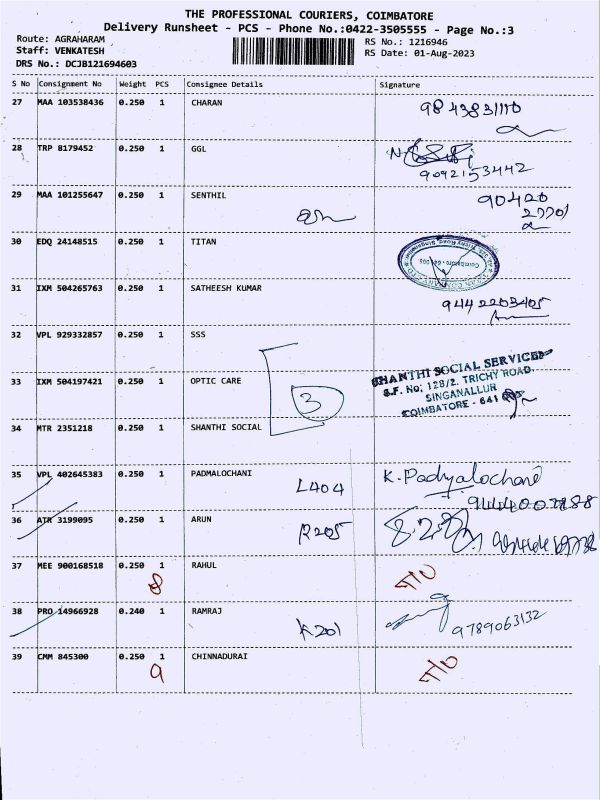 THE PROFESSIONAL COURIERS, COIMBATORE
Delivery Runsheet - PCS - Phone No.:0422-3505555 - Page No.:3
Route: AGRAHARAM
RS No.: 1216946
Staff: VENKATESH
RS Date: 01-Aug-2023
DRS No.: DCJB121694603
S No Consignment No Weight PCS Consignee Details Signature
27 MAA 103538436 0.250 1 CHARAN
28 TRP 8179452 0.250 1 GGL
9092153442
29 MAA 101255647 0.250 1 SENTHIL
90420
27701
30 EDQ 24148515 0.250 1 TITAN
31 IXM 504265763 0.250 1 SATHEESH KUMAR
9442203405
32 VPL 929332857 0.250 1 SSS
33 IXM 504197421 0.250 1 OPTIC CARE
3
SHANTHI SOCIAL SERVICES
S.F. No: 128/2, TRICHY ROAD
SINGANALLUR
COIMBATORE - 641
34 MTR 2351218 0.250 1 SHANTHI SOCIAL
35 VPL 402645383 0.250 1 PADMALOCHANI
L404
36 ATR 3199095 0.250 1 ARUN
R205
37 MEE 900168518 0.250 1 RAHUL
8
38 PRO 14966928 0.240 1 RAMRAJ
K201
9789063132
39 CMM 845300 0.250 1 CHINNADURAI
9